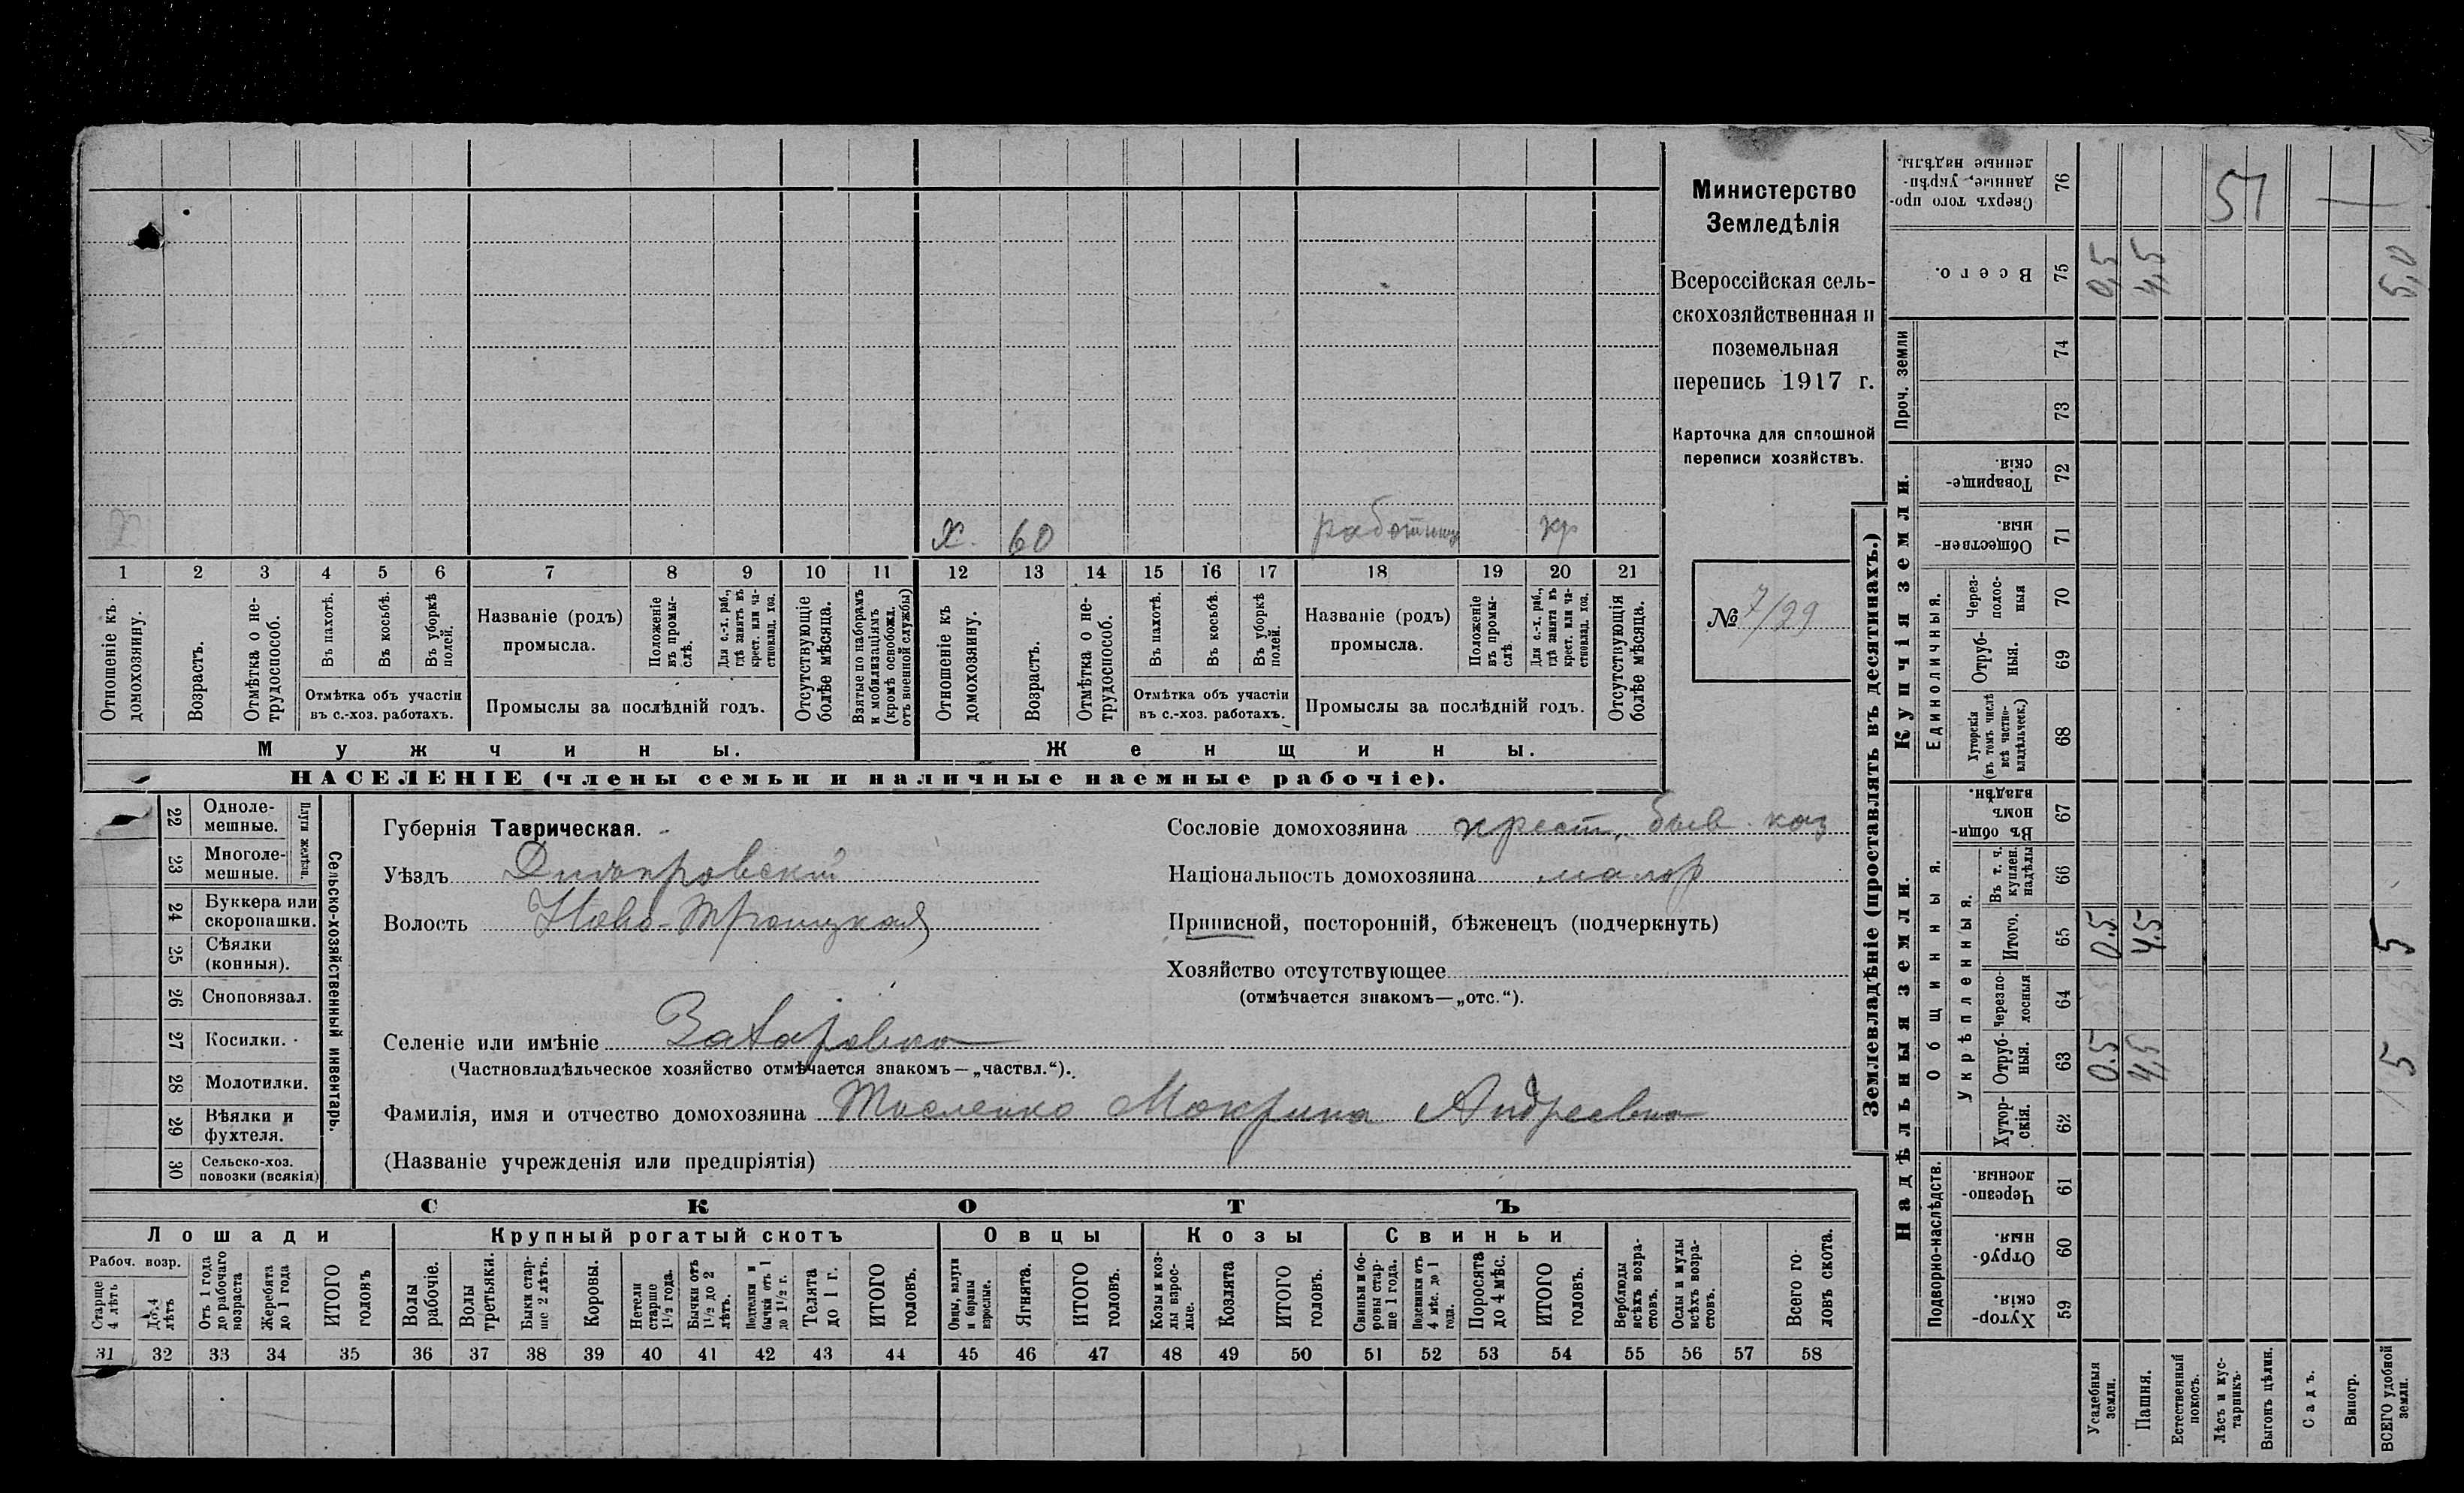 Министерство
Земледѣлія
Всероссійская сель-
скохозяйственная и
поземельная
перепись 1917 г.
Карточка для сплошной
переписи хозяйствъ.
№ 7/29
Х. 60 работниц кр
1 2 3 4 5 6 7 8 9 10 11 12 13 14 15 16 17 18 19 20 21
Отношеніе къ домохозяину.
Возрастъ.
Отмѣтка о не-трудоспособ.
Въ пахотѣ.
Въ косьбѣ.
Въ уборкѣ полей.
Отмѣтка объ участіи
въ с.-хоз. работахъ.
Названіе (родъ)
промысла.
Положеніе въ промы-слѣ.
Для с.-х. раб., гдѣ занятъ въ крест. или ча-стновлад. хоз.
Промыслы за послѣдній годъ.
Отсутствующіе болѣе мѣсяца.
Взятые по наборамъ и мобилизаціямъ (кромѣ освобожд. отъ военной службы)
Отношеніе къ домохозяину.
Возрастъ.
Отмѣтка о не-трудоспособ.
Въ пахотѣ.
Въ косьбѣ.
Въ уборкѣ полей.
Отмѣтка объ участіи
въ с.-хоз. работахъ.
Названіе (родъ)
промысла.
Положеніе въ промы-слѣ
Для с.-х. раб., гдѣ занята въ крест. или ча-стновлад. хоз.
Промыслы за послѣдній годъ.
Отсутствующія болѣе мѣсяца.
Мужчины.
Женщины.
НАСЕЛЕНІЕ (члены семьи и наличные наемные рабочіе).
22 Одноле-мешные.
23 Многоле-мешные.
Плуги желѣзн.
24 Буккера или скоропашки.
25 Сѣялки (конныя).
26 Сноповязал.
27 Косилки.
28 Молотилки.
29 Вѣялки и фухтеля.
30 Сельско-хоз. повозки (всякія)
Сельско-хозяйственный инвентарь.
Губернія Таврическая.
Уѣздъ Днѣпровскій
Волость Ново-Троицкая
Селеніе или имѣніе
(Частновладѣльческое хозяйство отмѣчается знакомъ—„частвл.“).
Фамилія, имя и отчество домохозяина Мокрина Андреевна
(Названіе учрежденія или предпріятія)
Сословіе домохозяина крест, быв. каз
Національность домохозяина малор
Приписной, посторонній, бѣженецъ (подчеркнуть)
Хозяйство отсутствующее
(отмѣчается знакомъ—„отс.“).
СКОТЪ
Лошади
Крупный рогатый скотъ
Овцы
Козы
Свиньи
Рабоч. возр.
Старше 4 лѣтъ
До 4 лѣтъ
Отъ 1 года до рабочаго возраста
Жеребята до 1 года
ИТОГО головъ
Волы рабочіе.
Волы третьяки.
Быки стар-ше 2 лѣтъ.
Коровы.
Нетели старше 1½ года.
Бычки отъ 1½ до 2 лѣтъ.
Подтелки и бычки отъ 1 до 1½ г.
Телята до 1 г.
ИТОГО головъ.
Овцы, валухи и бараны взрослые.
Ягнята.
ИТОГО головъ.
Козы и коз-лы взрос-лые.
Козлята
ИТОГО головъ.
Свиньи и бо-ровы стар-ше 1 года.
Подсвинки отъ 4 мѣс. до 1 года.
Поросята до 4 мѣс.
ИТОГО головъ.
Верблюды всѣхъ возра-стовъ.
Ослы и мулы всѣхъ возра-стовъ.
Всего го-ловъ скота.
31 32 33 34 35 36 37 38 39 40 41 42 43 44 45 46 47 48 49 50 51 52 53 54 55 56 57 58
Землевладѣніе (проставлять въ десятинахъ.)
Надѣльныя земли.
Купчія земли.
Проч. земли
Подворно-наслѣдств.
Общинныя.
Укрѣпленныя.
Единоличныя.
Сверхъ того про-данные, укрѣп-ленные надѣлы. 76
Всего. 75 0,5 4,5 5,0
74
73
Товарище-скія. 72
Обществен-ныя. 71
Через-полос-ныя 70
Отруб-ныя. 69
Хуторскія (въ томъ числѣ всѣ частно-владѣльческ.) 68
Въ общи-номъ владѣн. 67
Въ т. ч. куплен. надѣлы 66
Итого. 65 0.5 4.5 5
Черезпо-лосныя 64
Отруб-ныя. 63 0.5 4,5 5
Хутор-скія. 62
Черезпо-лосныя 61
Отруб-ныя. 60
Хутор-скія. 59
Усадебныя земли.
Пашня.
Естественный покосъ.
Лѣсъ и кус-тарникъ.
Выгонъ цѣлин.
Садъ.
Виногр.
ВСЕГО удобной земли.
51